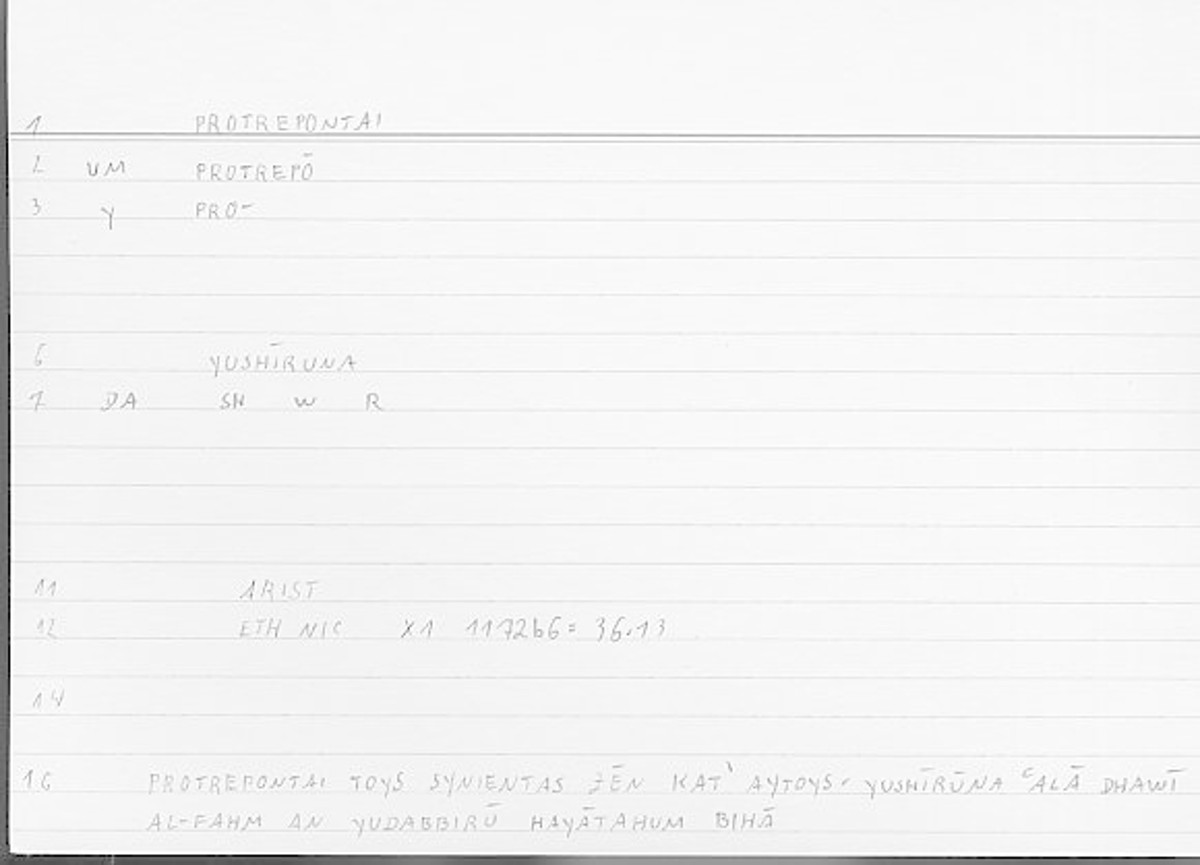 1 PROTREPONTAI
2 VM PROTREPŌ
3 Y PRO-
6 YUSHĪRUNA
7 DA SH W R
11 ARIST
12 ETH NIC X1 1172b6= 36.13
14
16 PROTREPONTAI TOYS SYNIENTAS ZĒN KAT' AYTOYS. YUSHĪRŪNA ʿALĀ DHAWĪ
AL-FAHM AN YUDABBIRŪ HAYĀTAHUM BIHĀ